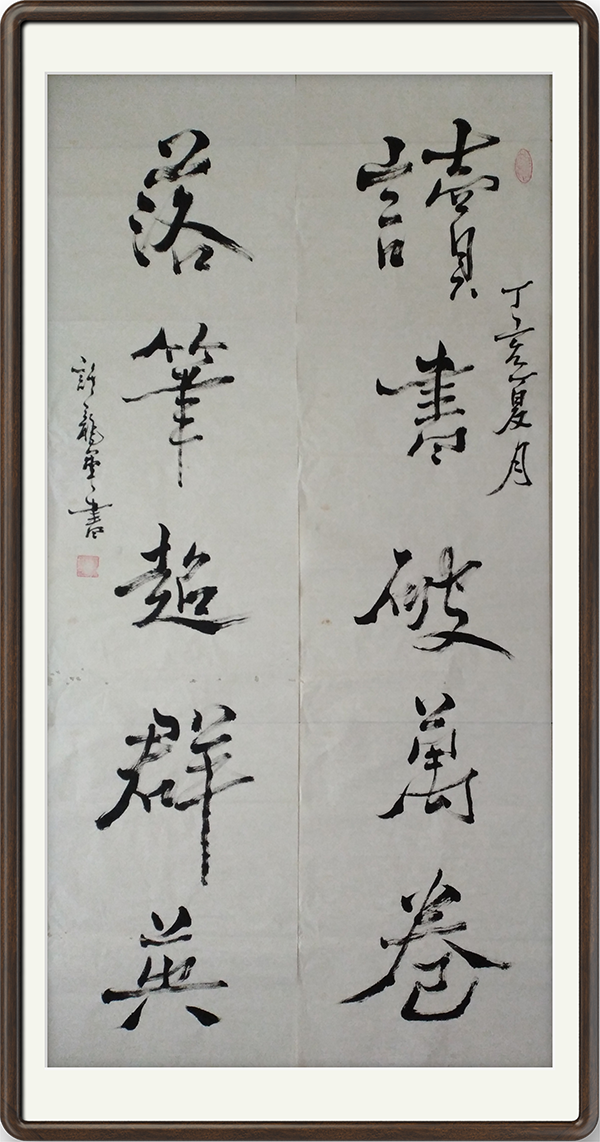 丁亥夏月
讀書破萬卷
落筆超群英
許龍 書